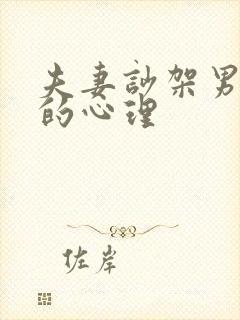 夫妻訬架男
的心理
佐岸